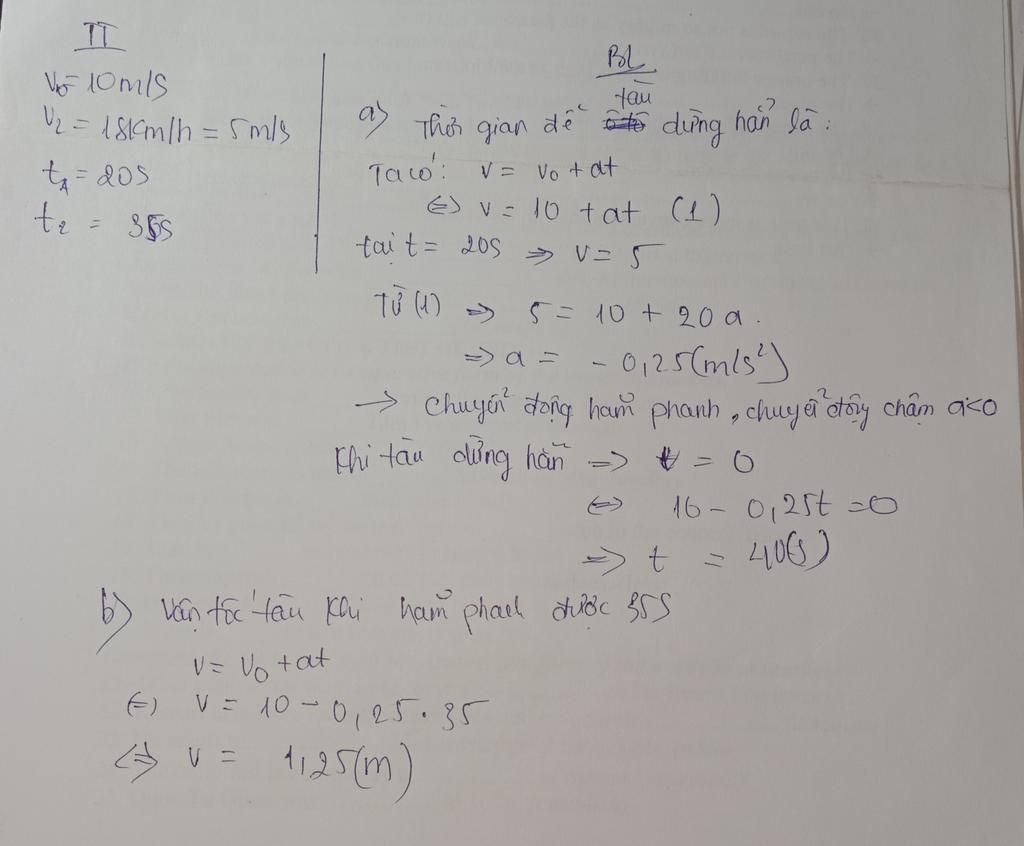 TT
V₀ = 10m/s
V₂ = 18Km/h = 5m/s
t₁ = 20s
t₂ = 35s
BL
a) Thời gian để tàu dừng hẳn là:
Ta có: v = v₀ + at
⇔ v = 10 + at (1)
tại t = 20s ⇒ v = 5
Từ (1) ⇒ 5 = 10 + 20a.
⇒ a = - 0,25(m/s²)
→ chuyển động hãm phanh, chuyển động chậm a<0
Khi tàu dừng hẳn ⇒ v = 0
⇔ 10 - 0,25t = 0
⇒ t = 40(s)
b) Vận tốc tàu khi hãm phah được 35s
v = v₀ + at
⇔ v = 10 - 0,25.35
⇔ v = 1,25(m)